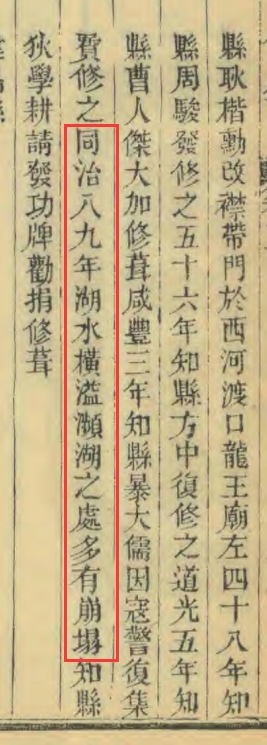 縣耿楷勷改襟帶門於西河渡口龍王廟左四十八年知
縣周駿發修之五十六年知縣方中復修之道光五年知
縣曹人傑大加修葺咸豐三年知縣暴大儒因寇警復集
貲修之同治八九年湖水橫溢瀕湖之處多有崩塌知縣
狄學耕請發功牌勸捐修葺